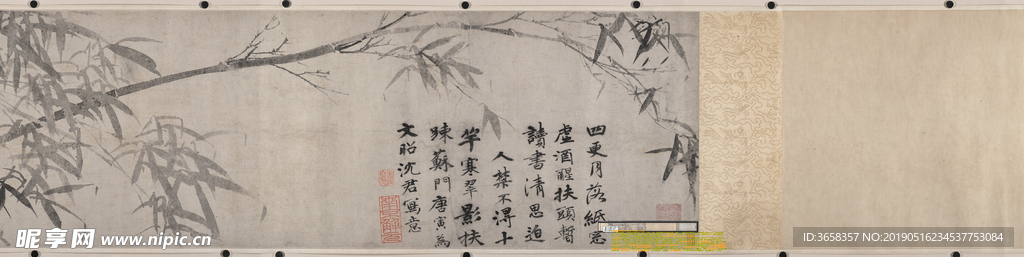 四更月落紙窓
虛酒醒扶頭暫
讀書清思迫
人禁不得十
竿寒翠影扶
踈蘇門唐寅為
文昭沈君寫意
昵享网 www.nipic.cn
ID:3658357 NO:20190516234537753084